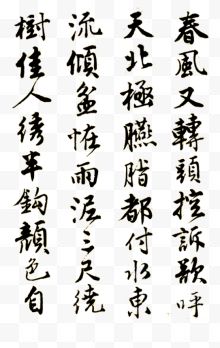 春風又轉頭控訴歌呼
天北極臙脂都付水東
流傾盆怪雨泥三尺繞
樹佳人繡半鉤顏色自